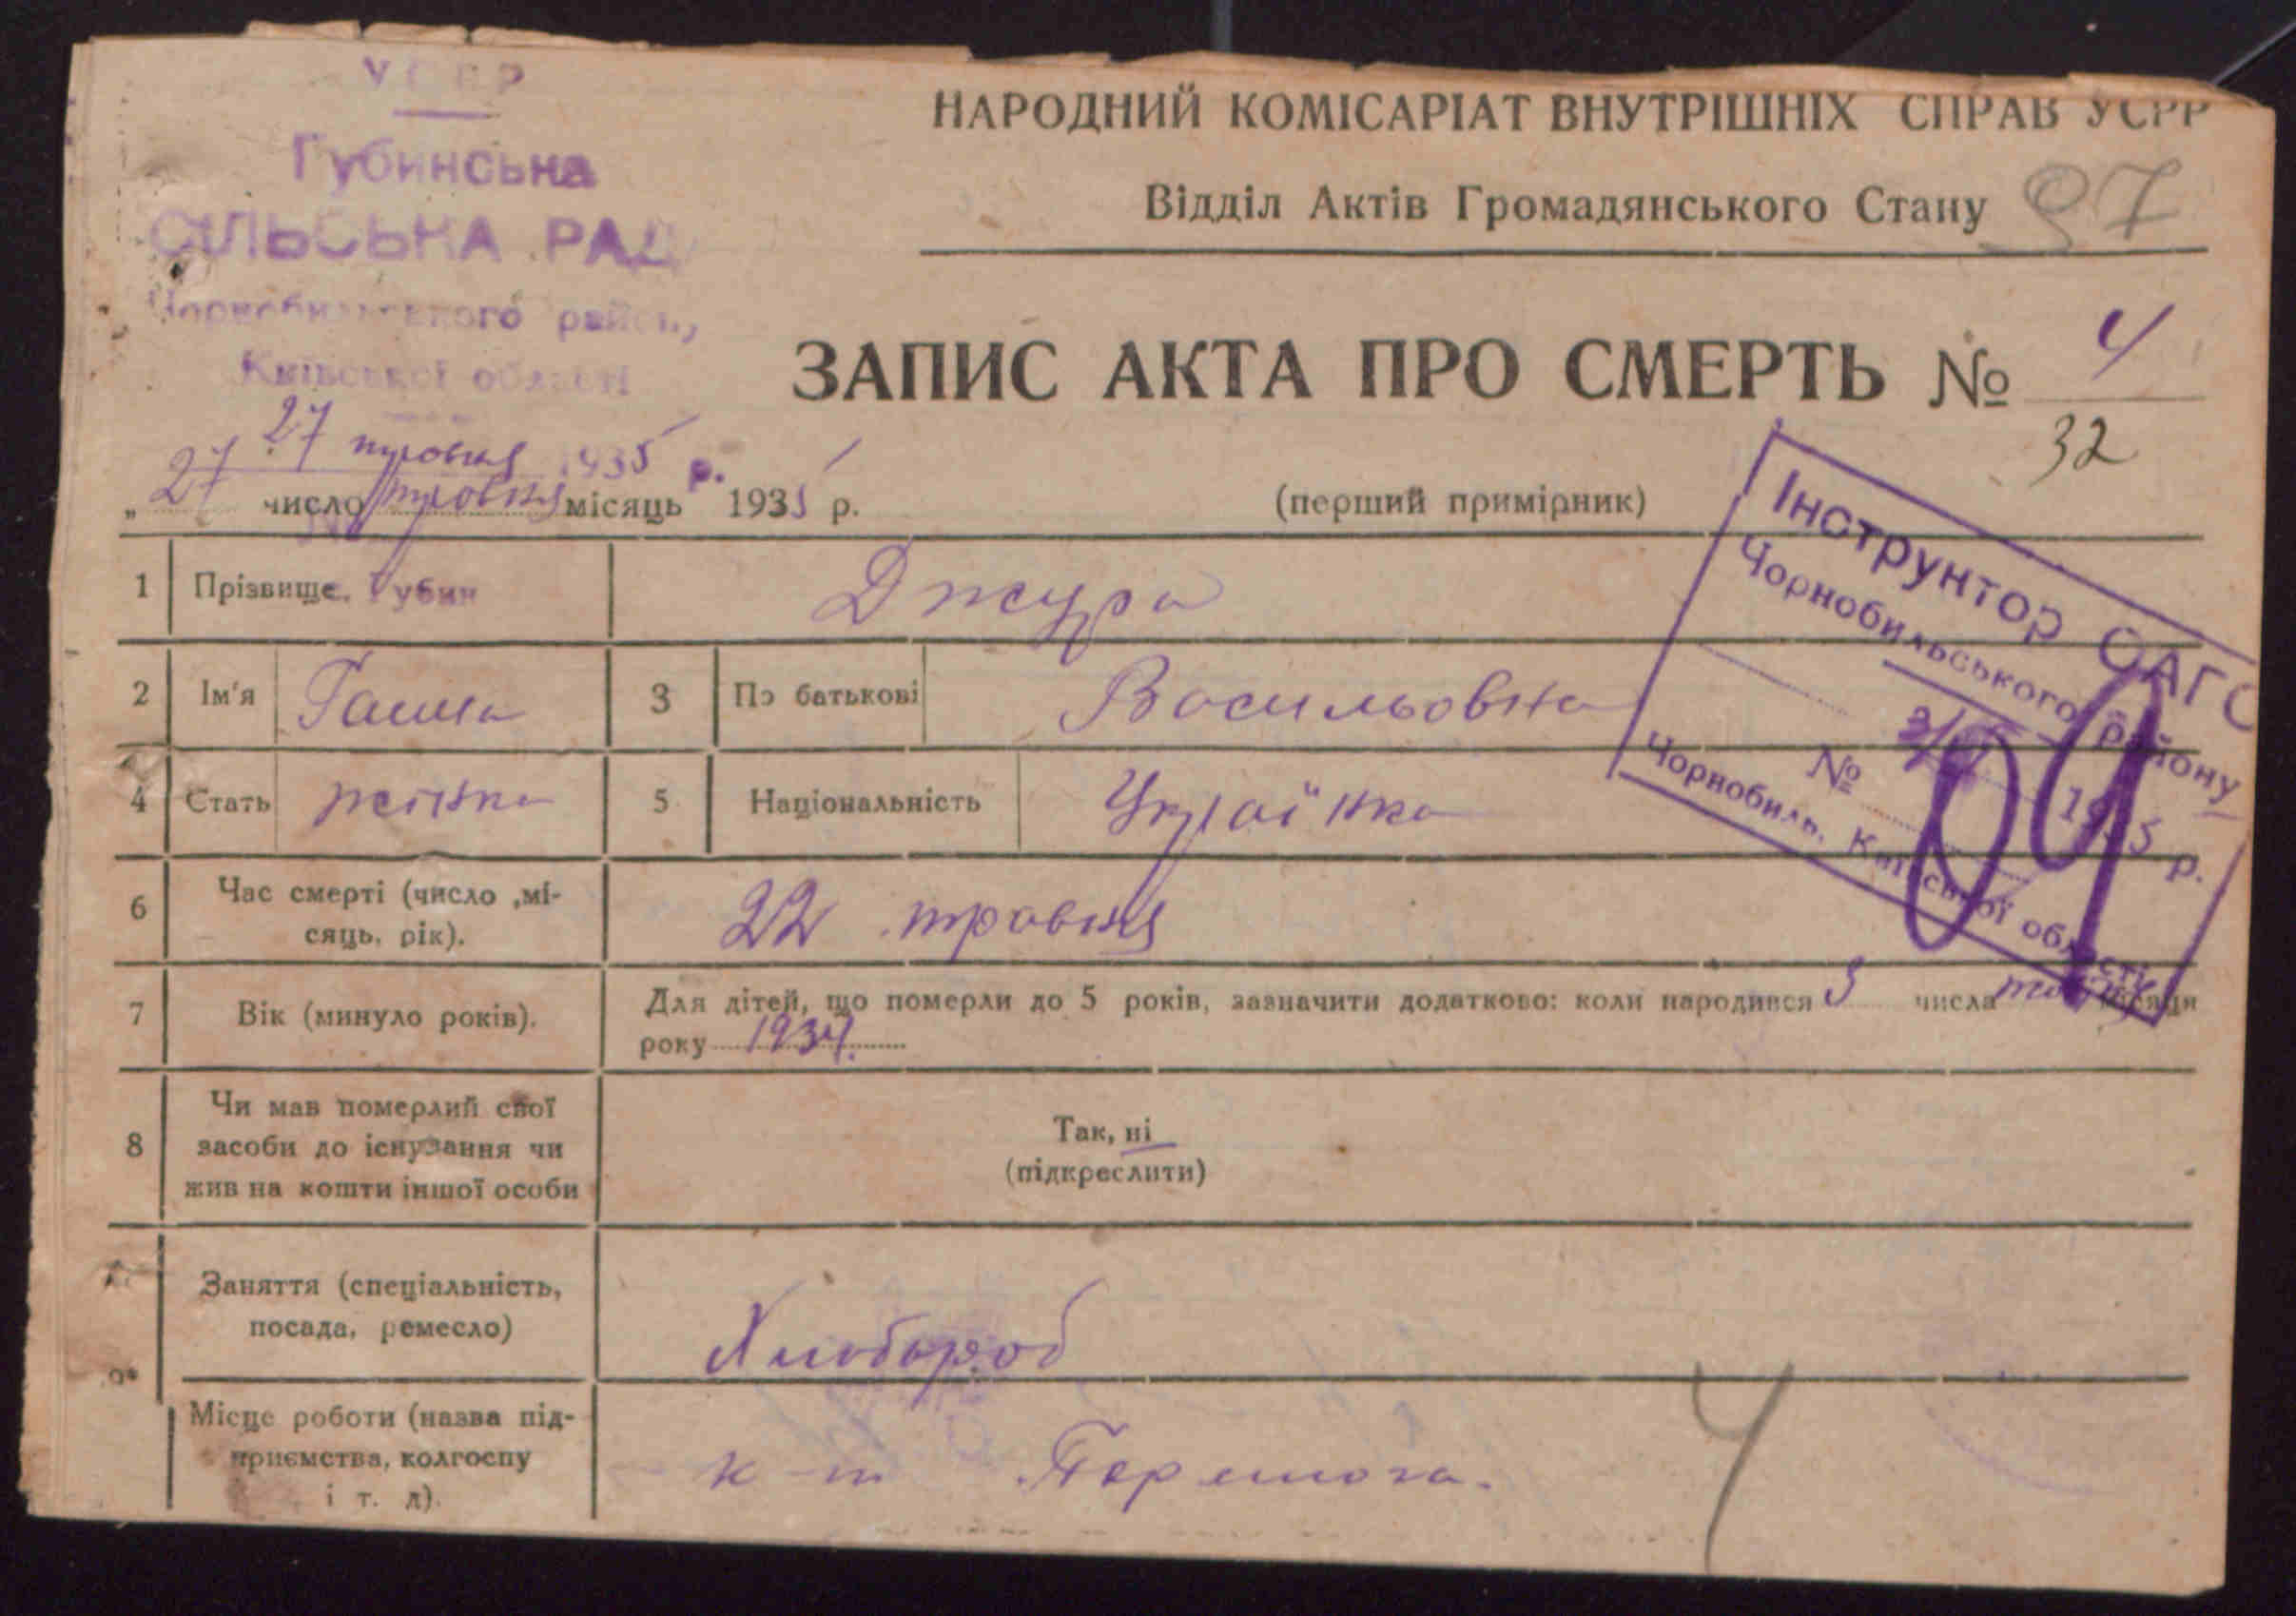 УСРР
Губинська
СІЛЬСЬКА РАДА
Чорнобильського району,
Київської області
27 травня 1935 р.
НАРОДНИЙ КОМІСАРІАТ ВНУТРІШНІХ СПРАВ УСРР
Відділ Актів Громадянського Стану 97
ЗАПИС АКТА ПРО СМЕРТЬ № 4
32
„27 число травня місяць 1935 р.
(перший примірник)
Інструктор ОАГС
Чорнобильського району
№ 1935 р.
Чорнобиль, Київської області
1 Прізвище. Губин Джура
2 Ім'я Ганна 3 По батькові Васильовна
4 Стать жінка 5 Національність Українка
6 Час смерті (число ,мі-
сяць, рік). 22 травня
7 Вік (минуло років). Для дітей, що померли до 5 років, зазначити додатково: коли народився 3 числа місяця
року 1934.
8 Чи мав померлий свої
засоби до існування чи
жив на кошти іншої особи
Так, ні
(підкреслити)
Заняття (спеціальність,
посада, ремесло) Хлібороб
9
Місце роботи (назва під-
приємства, колгоспу
і т. д).
к-т Перемога.
4